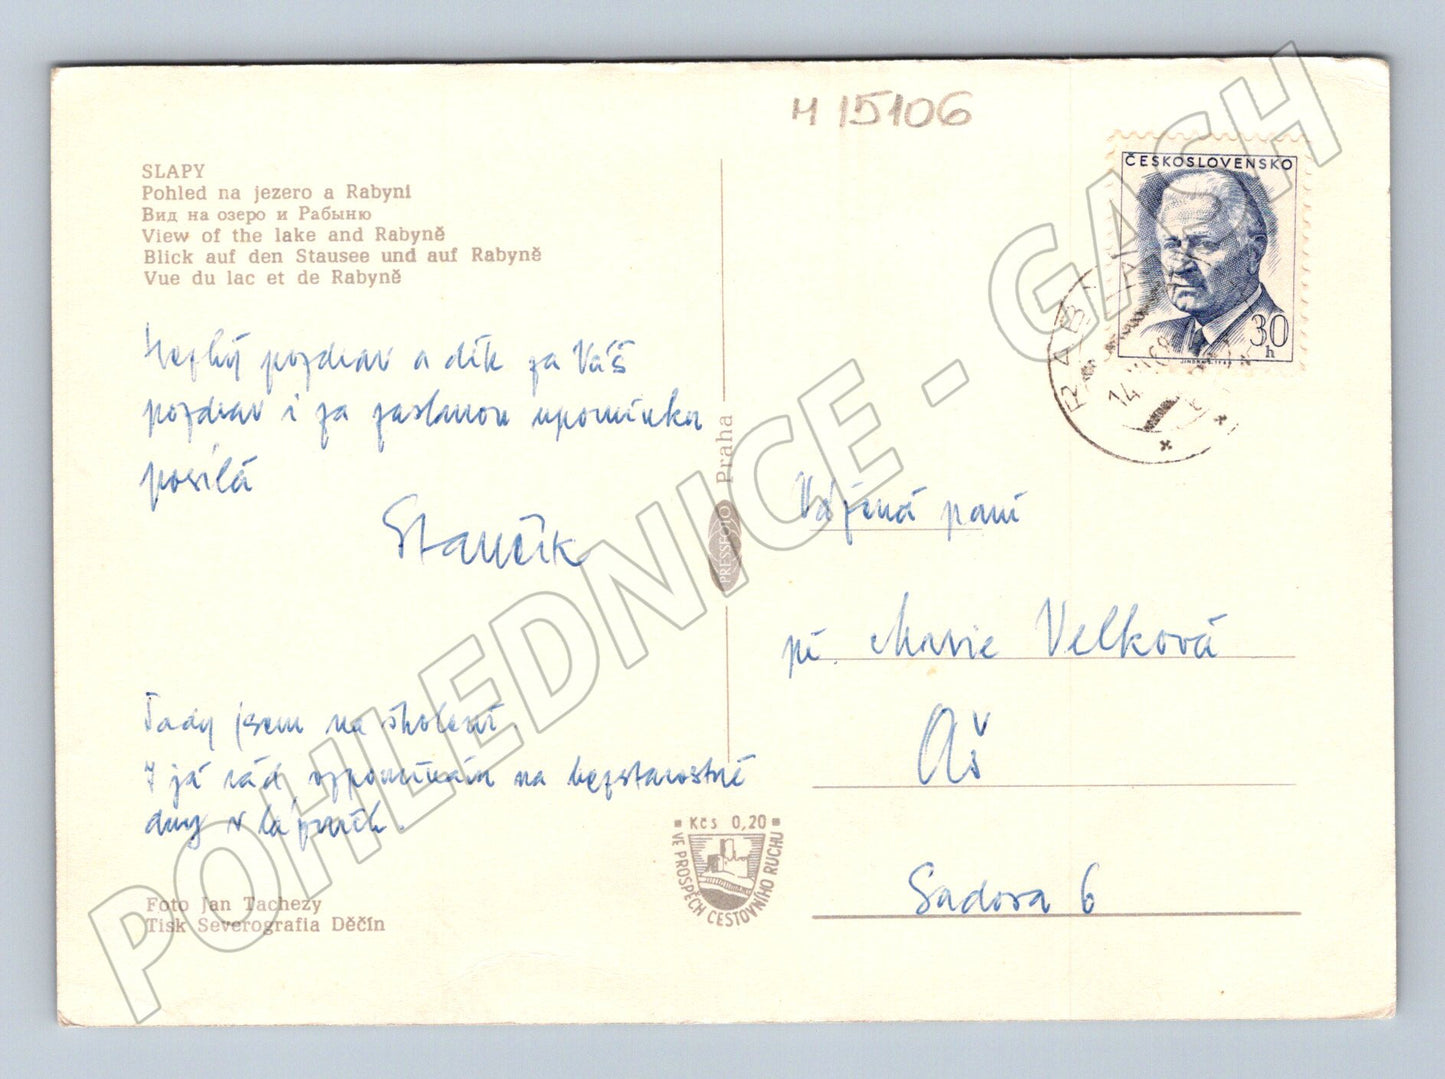 м 15106
SLAPY
Pohled na jezero a Rabyni
Вид на озеро и Рабыню
View of the lake and Rabyně
Blick auf den Stausee und auf Rabyně
Vue du lac et de Rabyně
Hezký pozdrav a dík za Váš
pozdrav i za zaslanou upomínku
posílá
Stančík
Tady jsem na školení.
I já rád vzpomínám na bezstarostné
dny v lázních.
Foto Jan Tachezy
Tisk Severografia Děčín
PRESSFOTO Praha
Kčs 0,20
VE PROSPĚCH CESTOVNÍHO RUCHU
ČESKOSLOVENSKO
30
h
RABYNĚ
14
Vážená paní
pí. Marie Velková
Aš
Sadova 6
POHLEDNICE - GASH